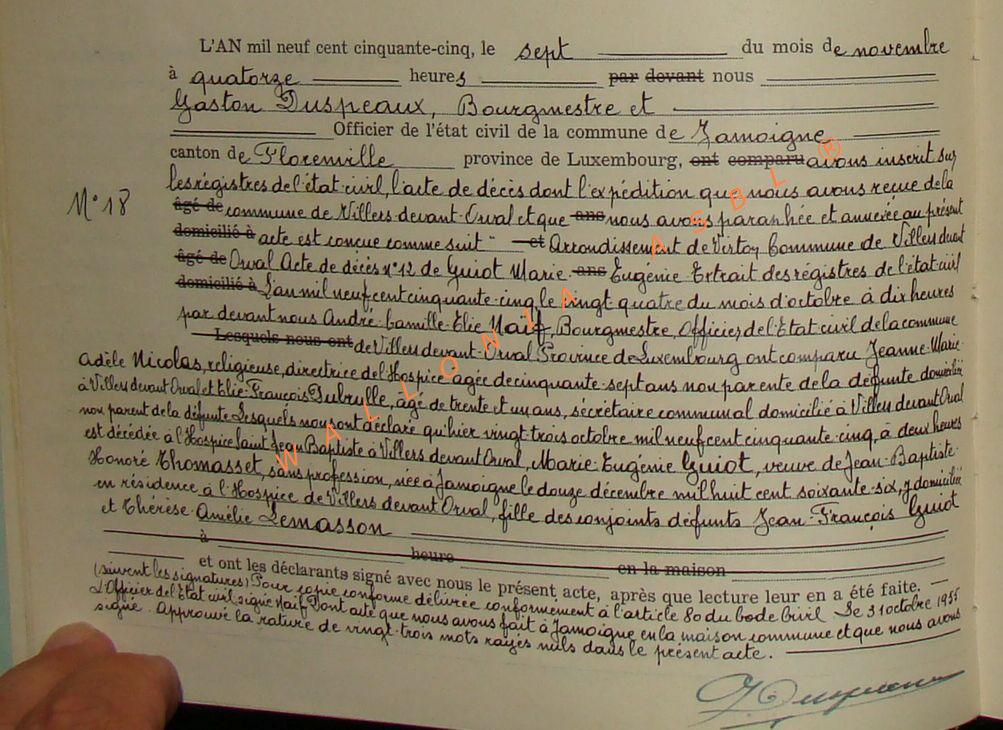 L'AN mil neuf cent cinquante-cinq, le sept du mois de novembre
à quatorze heures par devant nous
Gaston Duspeaux, Bourgmestre et
Officier de l'état civil de la commune de Jamoigne
canton de Florenville province de Luxembourg, ont comparu avons inscrit sur
les régistres de l'état civil, l'acte de décès dont l'expédition que nous avons reçue de la
N° 18 âgé de commune de Villers devant Orval et que ans nous avons paraphée et annexée au présent
domicilié à acte est conçue comme suit " et Arrondissement de Virton Commune de Villers devant
âgé de Orval Acte de décès n° 12 de Guiot Marie ans Eugénie Extrait des régistres de l'état civil
domicilié à L'an mil neuf cent cinquante-cinq le vingt quatre du mois d'octobre à dix heures
par devant nous André Camille Elie Naïf, Bourgmestre, Officier de l'Etat civil de la commune
Lesquels nous ont de Villers devant Orval Province de Luxembourg ont comparu Jeanne-Marie-
Adèle Nicolas, religieuse, directrice de l'Hospice agée de cinquante-sept ans non parente de la défunte domiciliée
à Villers devant Orval et Elie-François Dubrulle, agé de trente et un ans, sécrétaire communal domicilié à Villers devant Orval
non parent de la défunte Lesquels nous ont déclaré qu'hier vingt-trois octobre mil neuf cent cinquante-cinq, à deux heures
est décédée à l'Hospice Saint Jean Baptiste à Villers devant Orval, Marie-Eugénie Guiot, veuve de Jean-Baptiste-
Honoré Thomasset, sans profession, née à Jamoigne le douze décembre mil huit cent soixante-six, y domiciliée
en résidence à l'Hospice de Villers devant Orval, fille des conjoints défunts Jean-François Guiot
et Thérèse Amélie Lemasson
à heure en la maison
et ont les déclarants signé avec nous le présent acte, après que lecture leur en a été faite.
(suivent les signatures) Pour copie conforme délivrée conformément à l'article 80 du Code Civil Le 31 octobre 1955
L'Officier de l'Etat civil signé Naïf Dont acte que nous avons fait à Jamoigne en la maison commune et que nous avons
signé. Approuvé la rature de vingt-trois mots rayés nuls dans le présent acte.
G. Duspeaux
WALLONIA ASBL ®